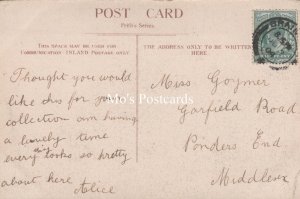 POST CARD
THIS SPACE MAY BE USED FOR
COMMUNICATION INLAND POSTAGE ONLY.
THE ADDRESS ONLY TO BE WRITTEN
HERE
Thought you would
like this for your
collection am having
a lovely time
every thing looks so pretty
about here Alice
Miss Goymer
Garfield Road
Ponders End
Middlesex
Mo's Postcards